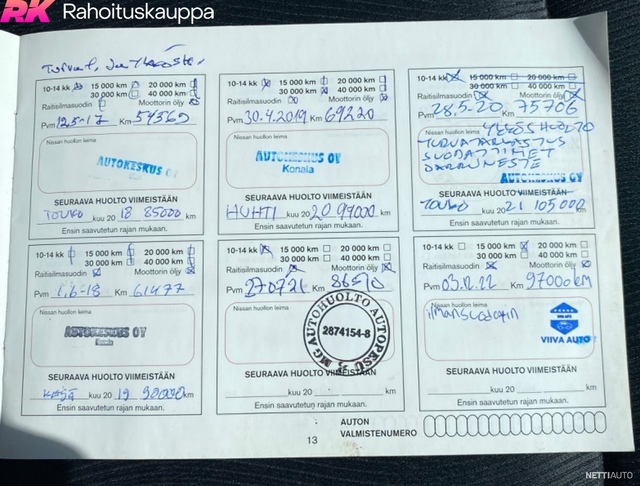 RK Rahoituskauppa
10-14 kk 15 000 km 20 000 km
30 000 km 40 000 km
Raitisilmasuodin Moottorin öljy
Pvm 12.5-17 Km 54565
Nissan huollon leima
AUTOKESKUS OY
SEURAAVA HUOLTO VIIMEISTÄÄN
TOUKO kuu 20 18 85000 km
Ensin saavutetun rajan mukaan.
10-14 kk 15 000 km 20 000 km
30 000 km 40 000 km
Raitisilmasuodin Moottorin öljy
Pvm 30.4.2019 Km 69220
Nissan huollon leima
AUTOKESKUS OY
Konala
SEURAAVA HUOLTO VIIMEISTÄÄN
HUHTI kuu 20 20 99000 km
Ensin saavutetun rajan mukaan.
10-14 kk 15 000 km 20 000 km
30 000 km 40 000 km
Raitisilmasuodin Moottorin öljy
Pvm 28.5-20 Km 75706
Nissan huollon leima
YLEOSHUOLTO
TURVATARKASTUS
SUODATTIMET
JARRUNESTE
AUTOKESKUS OY
SEURAAVA HUOLTO VIIMEISTÄÄN
TOUKO kuu 20 21 105000 km
Ensin saavutetun rajan mukaan.
10-14 kk 15 000 km 20 000 km
30 000 km 40 000 km
Raitisilmasuodin Moottorin öljy
Pvm 1.6-18 Km 61477
Nissan huollon leima
AUTOKESKUS OY
SEURAAVA HUOLTO VIIMEISTÄÄN
KESÄ kuu 20 19 90000 km
Ensin saavutetun rajan mukaan.
10-14 kk 15 000 km 20 000 km
30 000 km 40 000 km
Raitisilmasuodin Moottorin öljy
Pvm 270721 Km 86510
Nissan huollon leima
MG AUTOHUOLTO AUTOPESU
2874154-8
SEURAAVA HUOLTO VIIMEISTÄÄN
kuu 20 km
Ensin saavutetun rajan mukaan.
10-14 kk 15 000 km 20 000 km
30 000 km 40 000 km
Raitisilmasuodin Moottorin öljy
Pvm 03.12.22 Km 97000 KM
Nissan huollon leima
ilmansuodatin
VIIVA AUTO
SEURAAVA HUOLTO VIIMEISTÄÄN
kuu 20 km
Ensin saavutetun rajan mukaan.
13
AUTON
VALMISTENUMERO
NETTIAUTO